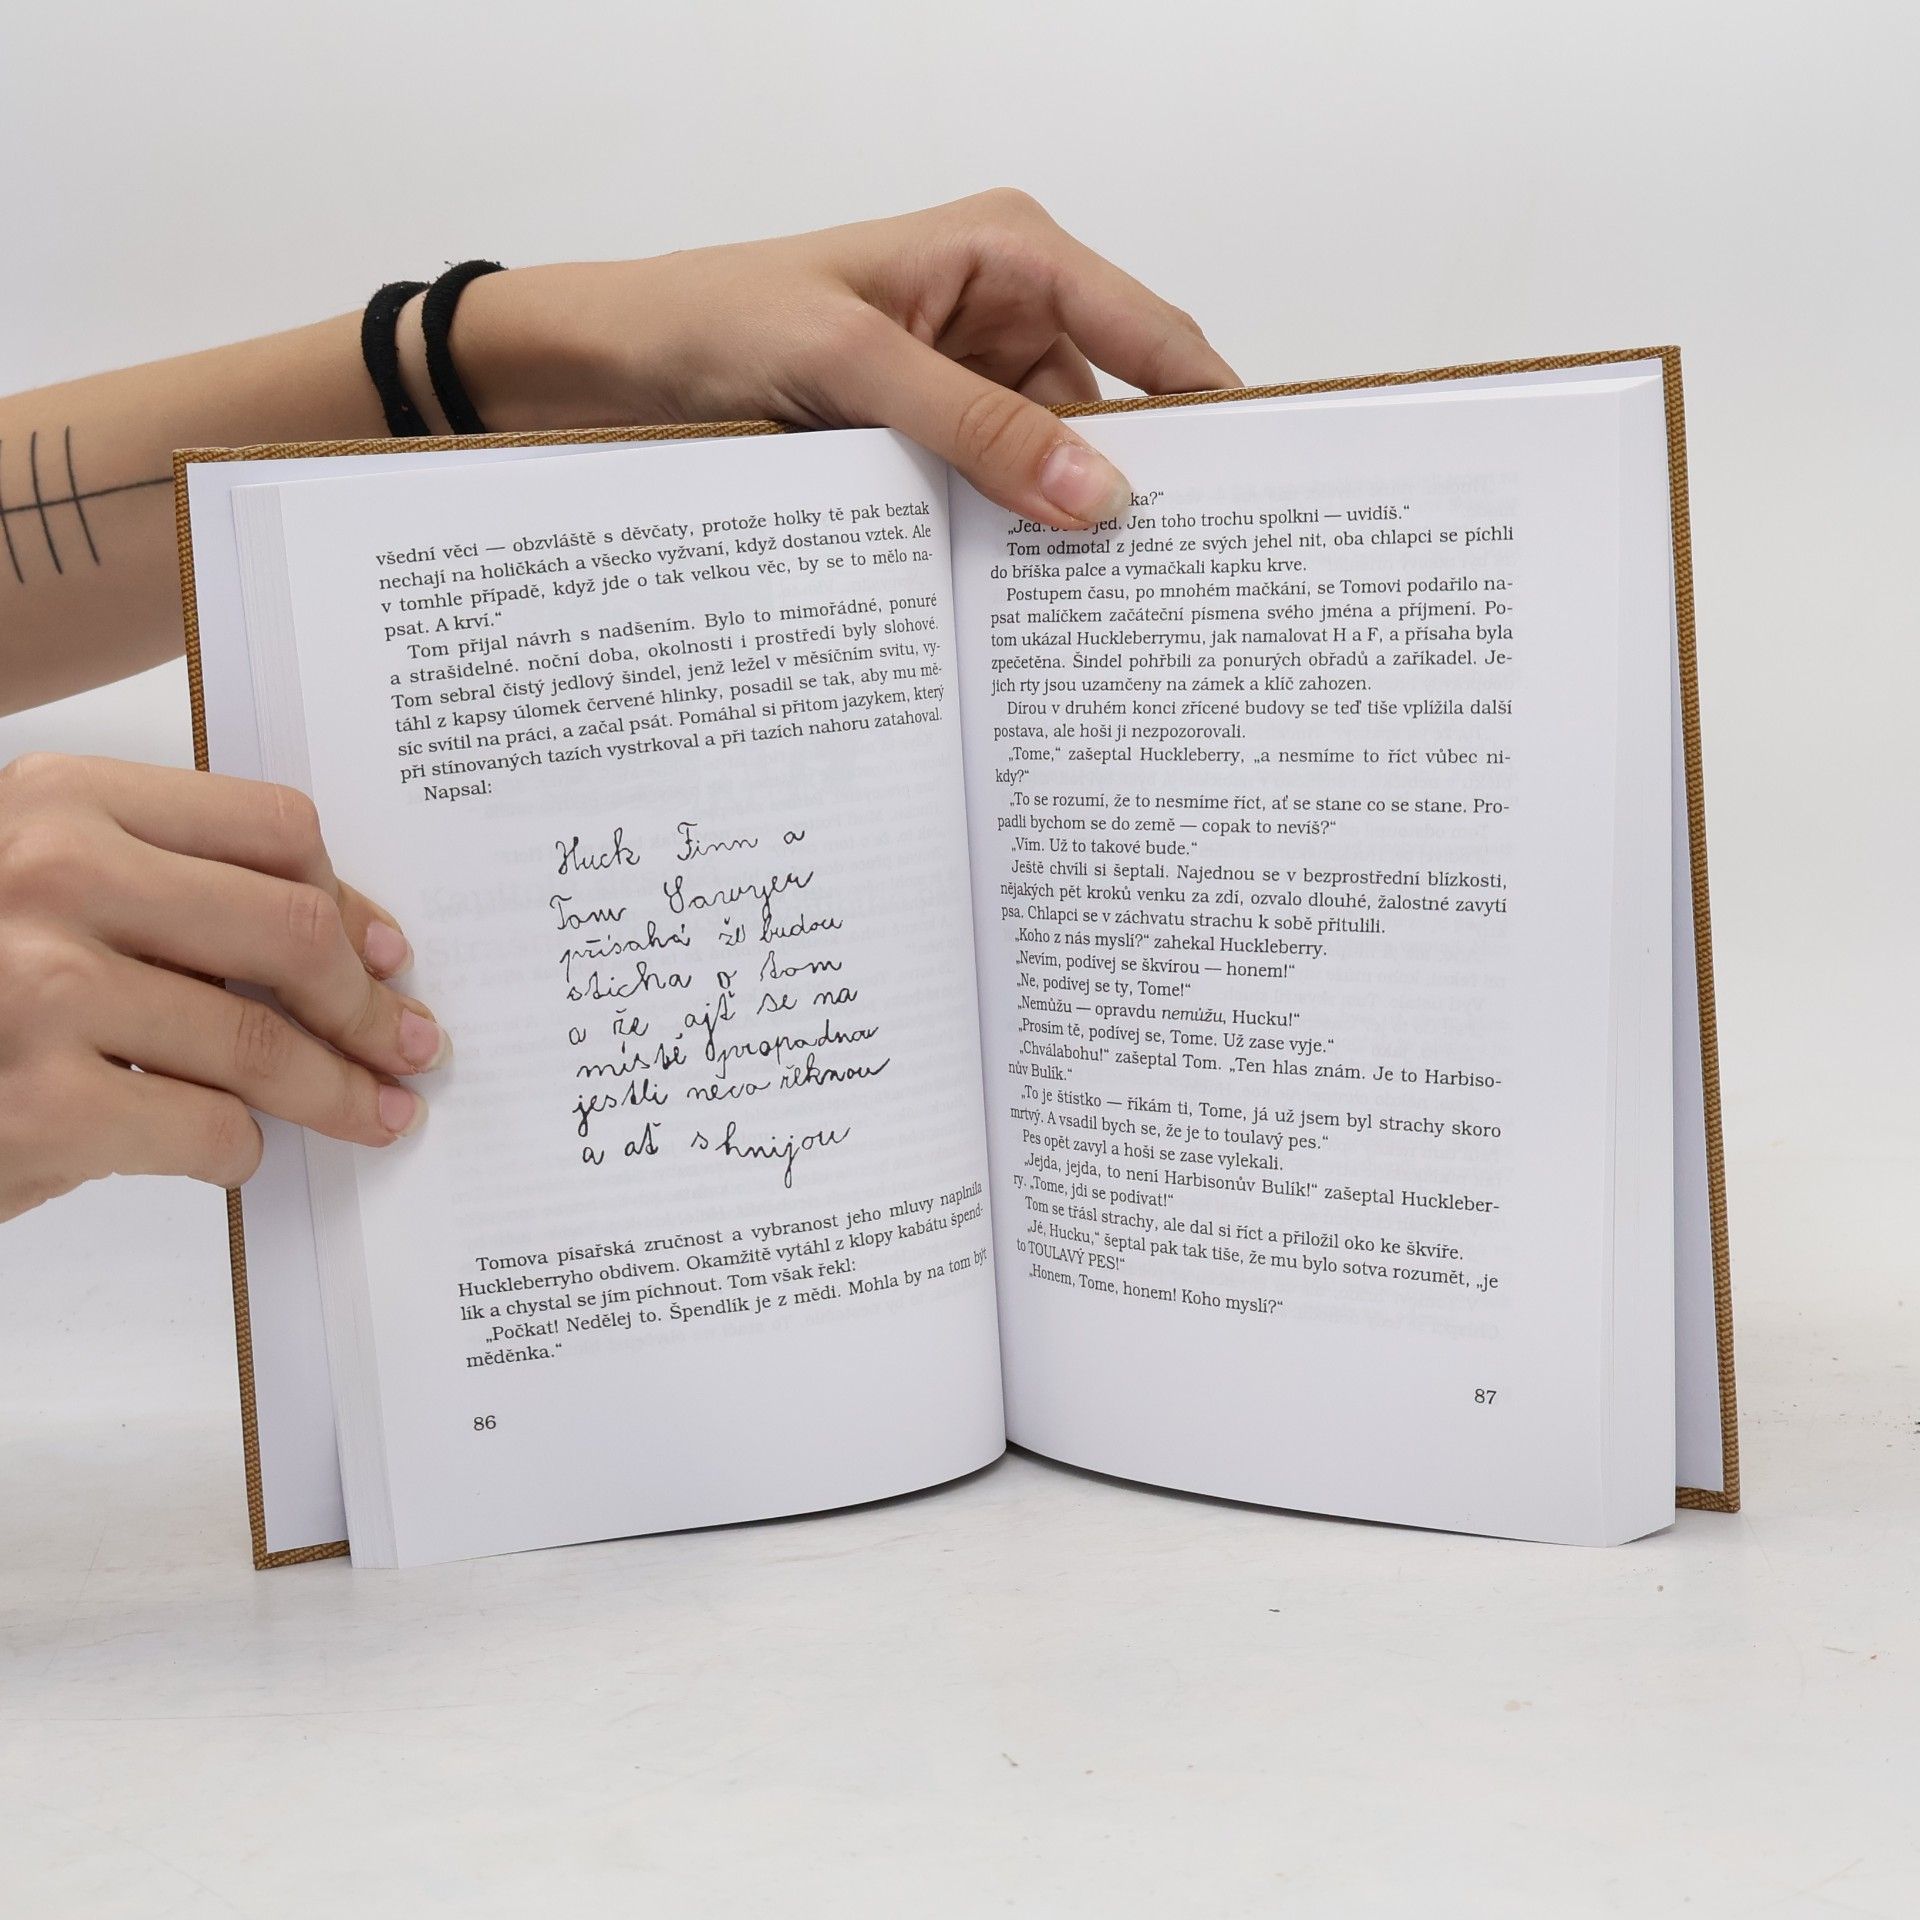 všední věci — obzvláště s děvčaty, protože holky tě pak beztak
nechají na holičkách a všecko vyžvaní, když dostanou vztek. Ale
v tomhle případě, když jde o tak velkou věc, by se to mělo na-
psat. A krví.“
Tom přijal návrh s nadšením. Bylo to mimořádné, ponuré
a strašidelné. noční doba, okolnosti i prostředí byly slohové.
Tom sebral čistý jedlový šindel, jenž ležel v měsíčním svitu, vy-
táhl z kapsy úlomek červené hlinky, posadil se tak, aby mu mě-
síc svítil na práci, a začal psát. Pomáhal si přitom jazykem, který
při stínovaných tazích vystrkoval a při tazích nahoru zatahoval.
Napsal:
Huck Finn a
Tom Sawyer
přísahá že budou
sticha o tom
a že ajť se na
místě propadnou
jestli neco řeknou
a ať shnijou
Tomova písařská zručnost a vybranost jeho mluvy naplnila
Huckleberryho obdivem. Okamžitě vytáhl z klopy kabátu špend-
lík a chystal se jím píchnout. Tom však řekl:
„Počkat! Nedělej to. Špendlík je z mědi. Mohla by na tom být
měděnka.“
86
ka?“
„Jed. jed. Jen toho trochu spolkni — uvidíš.“
Tom odmotal z jedné ze svých jehel nit, oba chlapci se píchli
do bříška palce a vymačkali kapku krve.
Postupem času, po mnohém mačkání, se Tomovi podařilo na-
psat malíčkem začáteční písmena svého jména a příjmení. Po-
tom ukázal Huckleberrymu, jak namalovat H a F, a přísaha byla
zpečetěna. Šindel pohřbili za ponurých obřadů a zaříkadel. Je-
jich rty jsou uzamčeny na zámek a klíč zahozen.
Dírou v druhém konci zřícené budovy se teď tiše vplížila další
postava, ale hoši ji nezpozorovali.
„Tome,“ zašeptal Huckleberry, „a nesmíme to říct vůbec ni-
kdy?“
„To se rozumí, že to nesmíme říct, ať se stane co se stane. Pro-
padli bychom se do země — copak to nevíš?“
„Vím. Už to takové bude.“
Ještě chvíli si šeptali. Najednou se v bezprostřední blízkosti,
nějakých pět kroků venku za zdí, ozvalo dlouhé, žalostné zavytí
psa. Chlapci se v záchvatu strachu k sobě přitulili.
„Koho z nás myslí?“ zahekal Huckleberry.
„Nevím, podívej se škvírou — honem!“
„Ne, podívej se ty, Tome!“
„Nemůžu — opravdu nemůžu, Hucku!“
„Prosím tě, podívej se, Tome. Už zase vyje.“
„Chválabohu!“ zašeptal Tom. „Ten hlas znám. Je to Harbiso-
nův Bulík.“
„To je štístko — říkám ti, Tome, já už jsem byl strachy skoro
mrtvý. A vsadil bych se, že je to toulavý pes.“
Pes opět zavyl a hoši se zase vylekali.
„Jejda, jejda, to není Harbisonův Bulík!“ zašeptal Huckleber-
ry. „Tome, jdi se podívat!“
Tom se třásl strachy, ale dal si říct a přiložil oko ke škvíře.
„Jé, Hucku,“ šeptal pak tak tiše, že mu bylo sotva rozumět, „je
to TOULAVÝ PES!“
„Honem, Tome, honem! Koho myslí?“
87